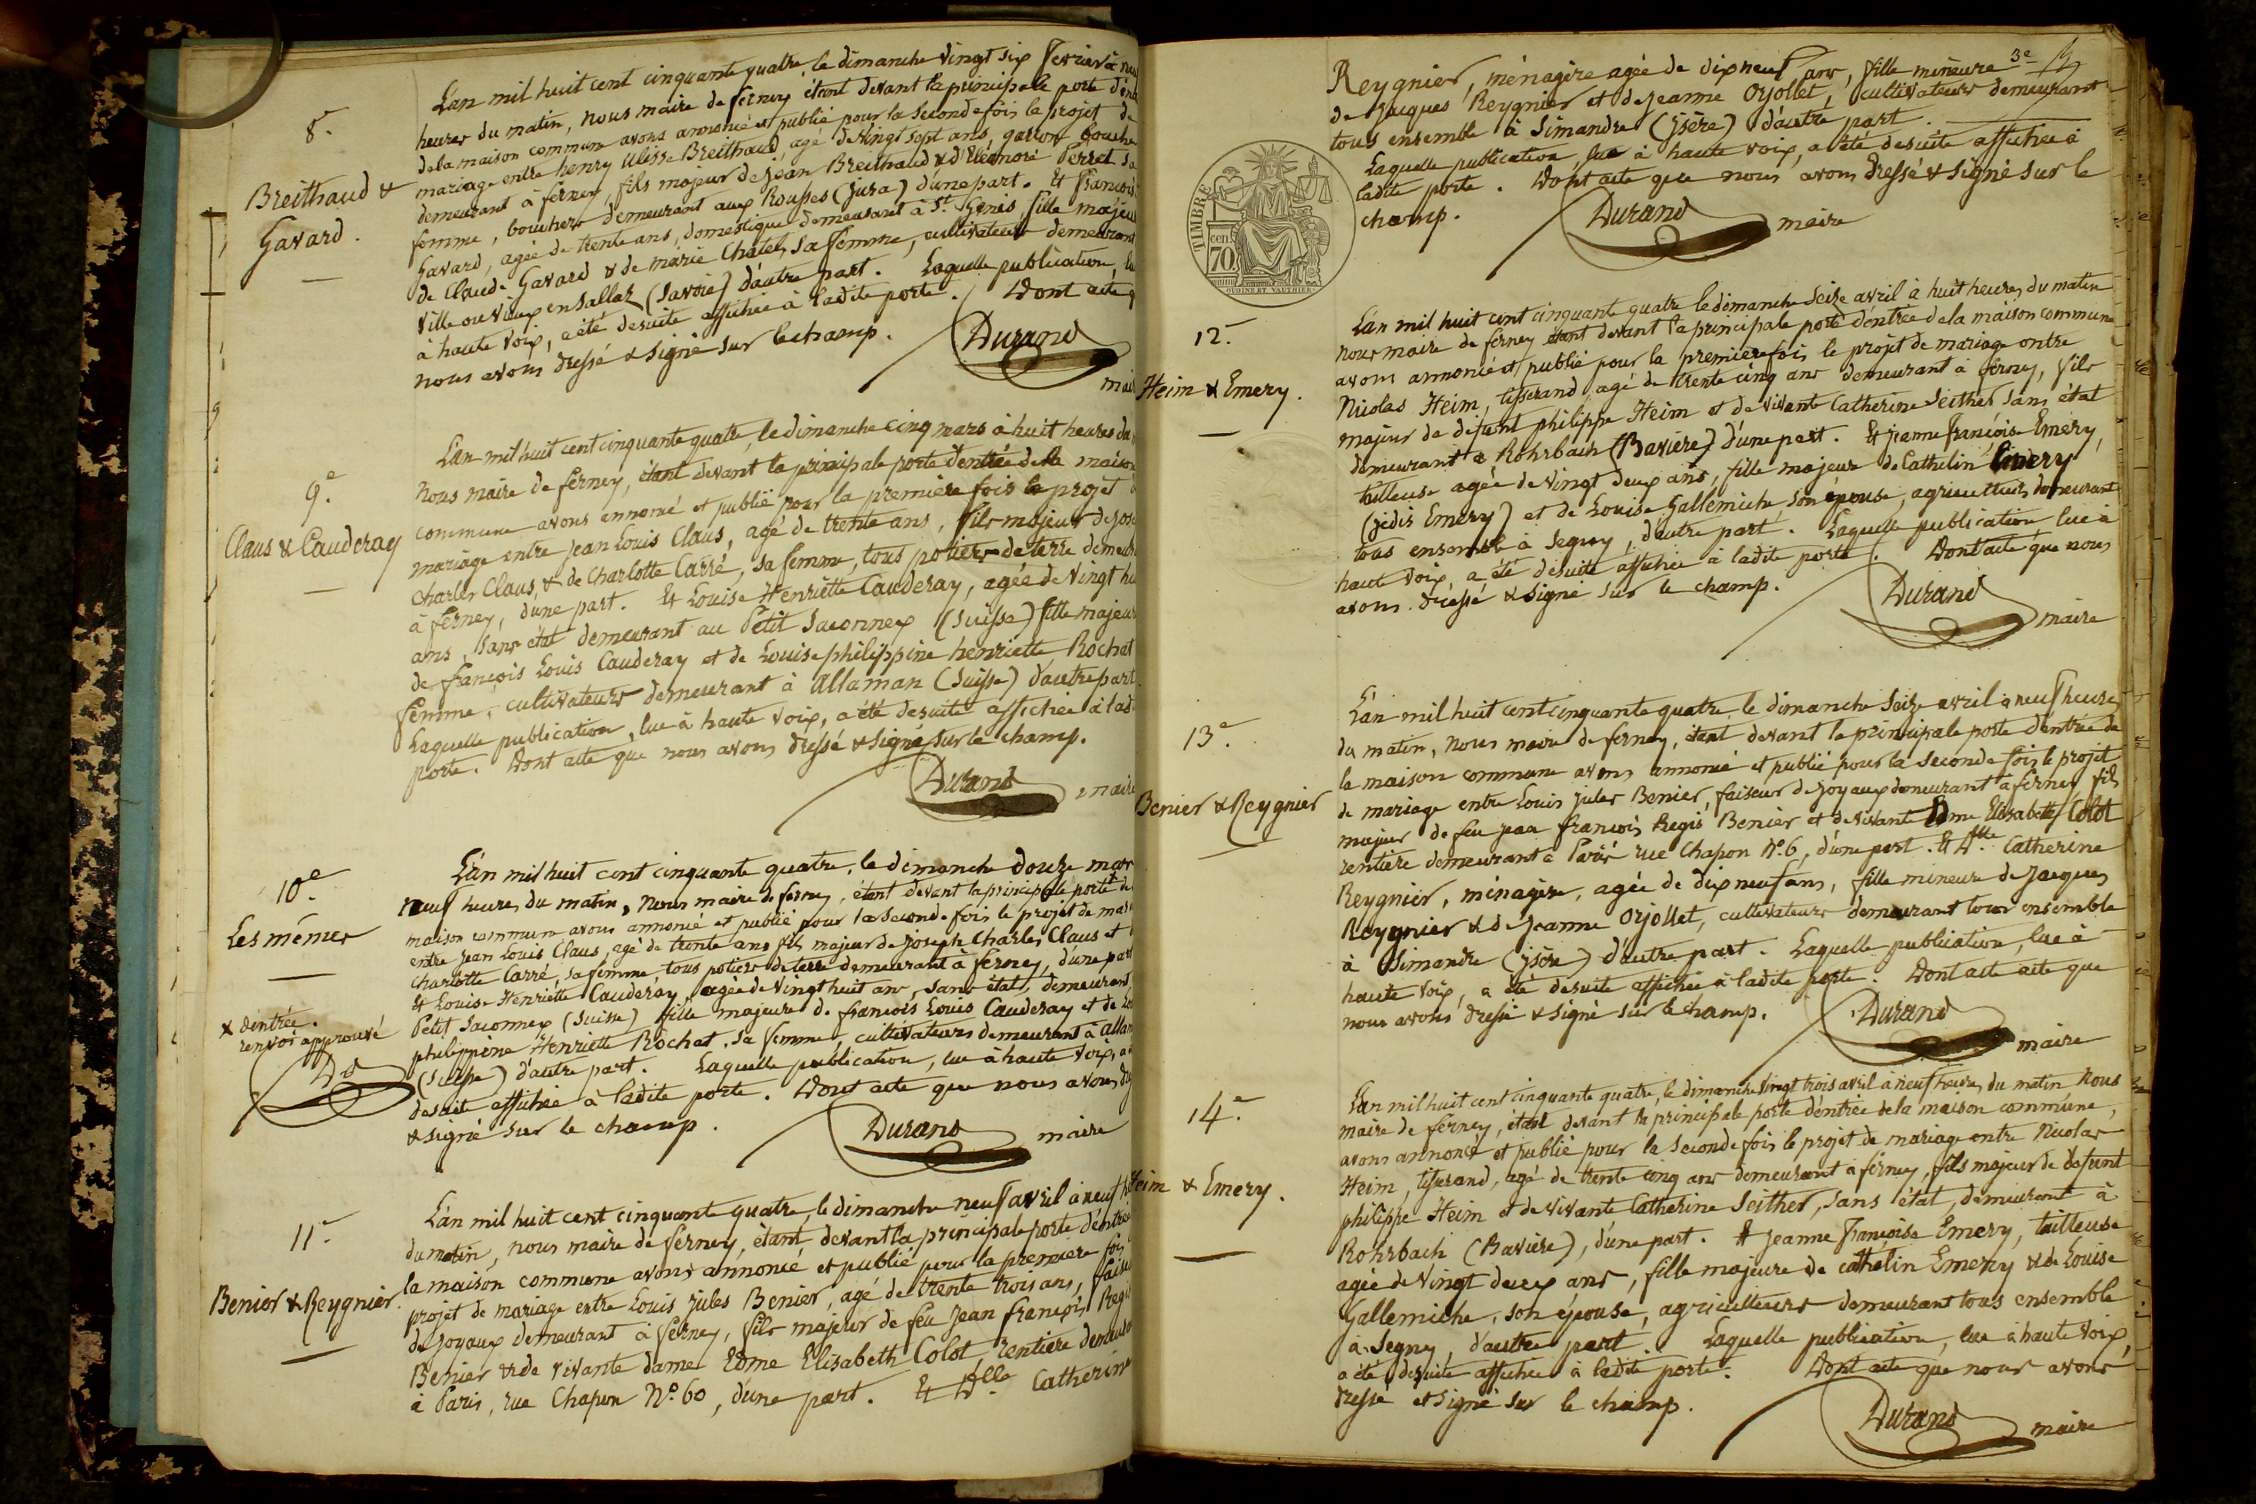 8e.
Breithaud &
Gavard.
L'an mil huit cent cinquante quatre, le dimanche vingt six fevrier à neuf
heures du matin, nous maire de ferney étant devant la principale porte d'entr
de la maison commune avons annoncé et publié pour la seconde fois le projet de
mariage entre henry Ulisse Breithaud, agé de vingt sept ans, garçon bouche
demeurant à ferney, fils majeur de Jean Breithaud & d'Eléonore Perret sa
femme, bouchers demeurant aux Rousses (jura) d'une part. Et françoise
Gavard, agée de trente ans, domestique demeurant à St. Genis fille majeu
de Claude Gavard & de marie Chatel, sa femme, cultivateurs demeurant
ville ou vieux en Sallaz (Savoie) d'autre part. Laquelle publication, lu
à haute voix, a été desuite affichée à ladite porte. Dont acte q
nous avons dressé & signé sur le champ.
Durand
mai
9e.
Claus & Cauderay
L'an mil huit cent cinquante quatre, le dimanche cinq mars à huit heures du
nous maire de ferney, étant devant la principale porte d'entrée de la maison
commune avons annoncé et publié pour la premiere fois le projet d
mariage entre Jean Louis Claus, agé de trente ans, fils majeur de Jose
charles Claus, & de Charlotte Carré, sa femme, tous potiers de terre demeur
à ferney, d'une part. Et Louise Henriette Cauderay, agée de vingt hu
ans, sans état demeurant au Petit Saconnex (Suisse) fille majeur
de françois Louis Cauderay et de Louise philippine henriette Rochat
femme, cultivateurs demeurant à Allaman (Suisse) d'autre part.
Laquelle publication, lue à haute voix, a été desuite affichée à lad
porte. Dont acte que nous avons dressé & signé sur le champ.
Durand
maire
10e.
Les mêmes
& d'entrée.
renvoi approuvé
Dd
L'an mil huit cent cinquante quatre, le dimanche douze mars
neuf heures du matin, nous maire de ferney, étant devant la principale porte & de
maison commune avons annoncé et publié pour la seconde fois le projet de mar
entre Jean Louis Claus, agé de trente ans fils majeur de Joseph Charles Claus et
charlotte Carré, sa femme, tous potiers de terre demeurant à ferney, d'une part
Et Louise Henriette Cauderay, agée de vingt huit ans, sans état, demeurant,
Petit Saconnex (Suisse) fille majeure de françois Louis Cauderay et de Lo
philippine Henriette Rochat, sa femme, cultivateurs demeurant à allam
(Suisse) d'autre part. Laquelle publication, lue à haute voix, a
desuite affichée à ladite porte. Dont acte que nous avons d
& signé sur le champ.
Durand maire
11e.
Benier & Reygnier.
L'an mil huit cent cinquante quatre, le dimanche neuf avril à neuf h
du matin, nous maire de ferney, étant devant la principale porte d'entrée
la maison commune avons annoncé et publié pour la premiere fois
projet de mariage entre Louis Jules Benier, agé de trente trois ans, faise
de joyaux demeurant à ferney, fils majeur de feu Jean françois Regis
Benier & de vivante dame Edme Elisabeth Colot rentière demeur
à Paris, rue Chapon No. 60, d'une part. Et Dlle Catherin
3e
Reygnier, ménagère agée de dixneuf ans, fille mineure
de Jacques Reygnier et de Jeanne Orjollet, cultivateurs demeurant
tous ensemble à Simandre (jsère) d'autre part.
Laquelle publication, lue à haute voix, a été desuite affichée à
ladite porte. Dont acte que nous avons dressé & signé sur le
champ.
Durand
maire
TIMBRE
cen.
70
OUDINE ET VAUTHIER
12e.
Heim & Emery.
L'an mil huit cent cinquante quatre le dimanche seize avril à huit heures du matin
nous maire de ferney étant devant la principale porte d'entrée de la maison commune
avons annoncé et publié pour la premiere fois le projet de mariage entre
Nicolas Heim, tisserand, agé de trente cinq ans demeurant à ferney, fils
majeur de défunt philippe Heim et de vivante Catherine Seither sans état
demeurant à Rohrbach (Bavière) d'une part. Et jeanne françoise Emery,
tailleuse agée de vingt deux ans, fille majeur de Cathelin Emery
(jedis Emery) et de Louise Gallemiche, son épouse, agriculteurs demeurant
tous ensemble à Segny, d'autre part. Laquelle publication lue à
haute voix, a été desuite affichée à ladite porte. Dont acte que nous
avons dressé & signé sur le champ.
Durand
maire
13e.
Benier & Reygnier
L'an mil huit cent cinquante quatre, le dimanche seize avril à neuf heures
du matin, nous maire de ferney, étant devant la principale porte d'entrée de
la maison commune avons annoncé et publié pour la seconde fois le projet
de mariage entre Louis jules Benier, faiseur de joyaux demeurant à ferney, fils
majeur de feu jean françois Regis Benier et de vivante Edme Elisabeth Colot
rentière demeurant à Paris rue Chapon No. 6, d'une part. Et Dlle Catherine
Reygnier, ménagère, agée de dixneuf ans, fille mineure de Jacques
Reygnier & de Jeanne Orjollet, cultivateurs demeurant tous ensemble
à Simandre (jsère) d'autre part. Laquelle publication, lue à
haute voix, a été desuite affichée à ladite porte. Dont acte acte que
nous avons dressé & signé sur le champ.
Durand
maire
14e.
Heim & Emery.
L'an mil huit cent cinquante quatre, le dimanche vingt trois avril à neuf heures du matin nous
maire de ferney, étant devant la principale porte d'entrée de la maison commune,
avons annoncé et publié pour la seconde fois le projet de mariage entre Nicolas
Heim, tisserand, agé de trente cinq ans demeurant à ferney, fils majeur de défunt
philippe Heim et de vivante Catherine Seither, sans état, demeurant à
Rohrbach (Bavière), d'une part. Et Jeanne françoise Emery, tailleuse
agée de vingt deux ans, fille majeure de cathelin Emery & de Louise
Gallemiche, son épouse, agriculteurs demeurant tous ensemble
à Segny, d'autre part. Laquelle publication, lue à haute voix,
a été desuite affichée à ladite porte. Dont acte que nous avons
dressé et signé sur le champ.
Durand
maire